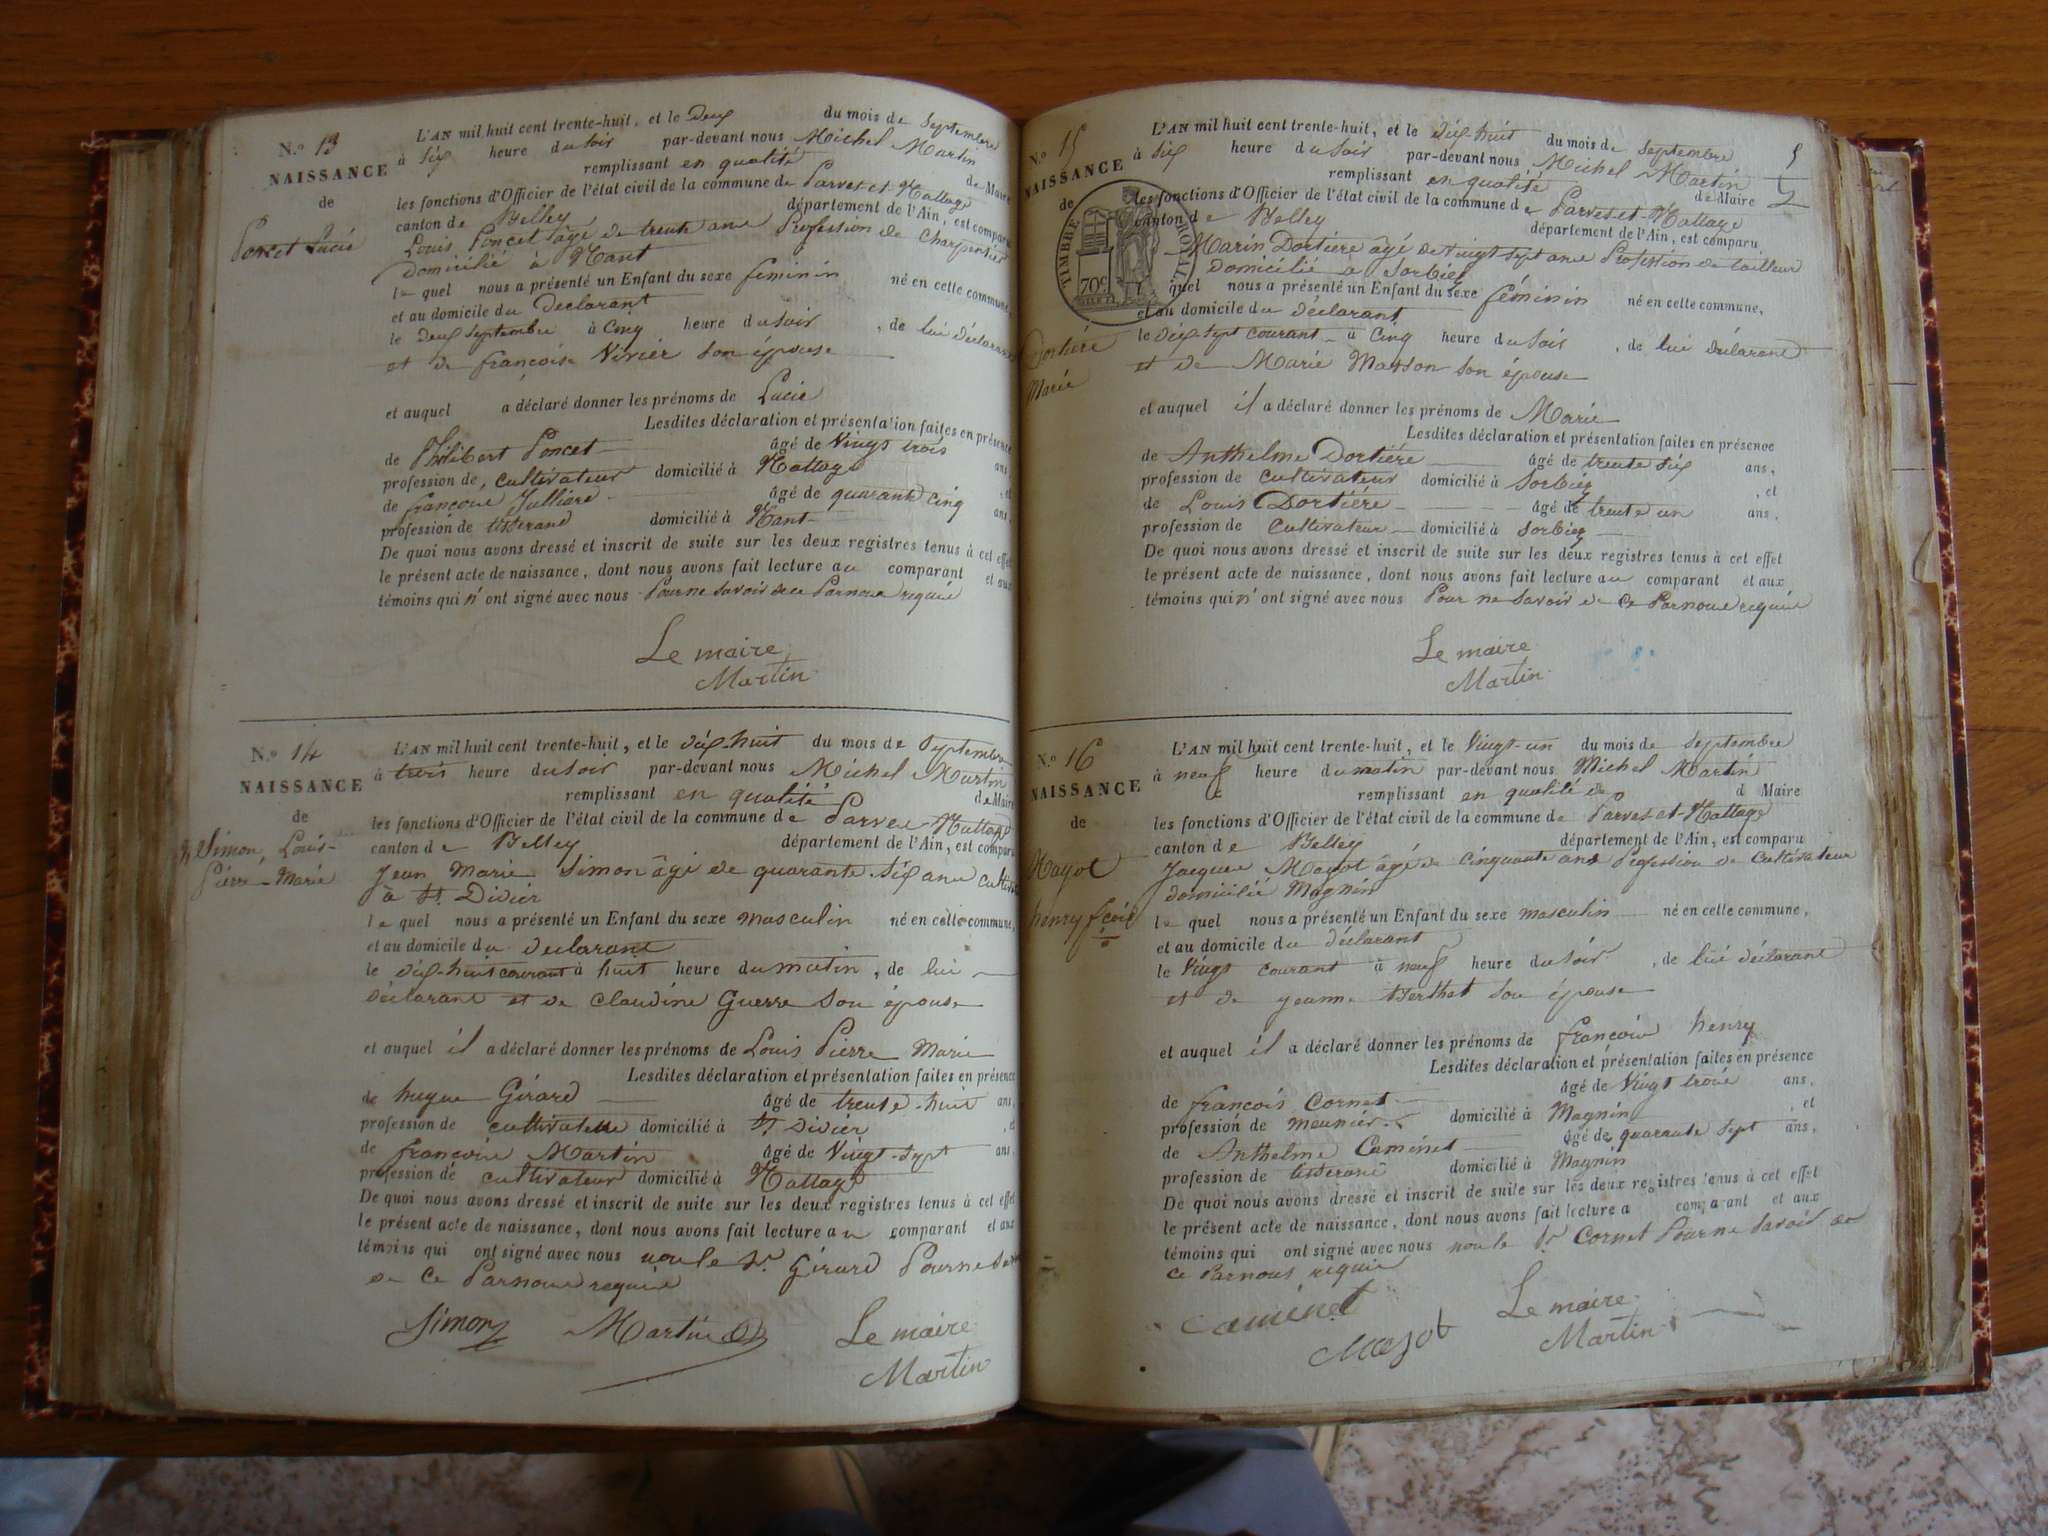 N.º 13
NAISSANCE
de
Poncet Lucie
L'AN mil huit cent trente-huit, et le deux du mois de Septembre
à Six heure du Soir par-devant nous Michel Martin
remplissant en qualité de Maire
les fonctions d'Officier de l'état civil de la commune de Parves-et-Nattage
canton de Belley département de l'Ain, est comparu
Louis Poncet âgé de trente ans Profession de Charpentier
domicilié à Nant
le quel nous a présenté un Enfant du sexe féminin né en cette commune,
et au domicile du Déclarant
le deux Septembre à Cinq heure du Soir, de lui déclarant
et de françoise Vivier son épouse
et auquel a déclaré donner les prénoms de Lucie
Lesdites déclaration et présentation faites en présence
de Philibert Poncet âgé de Vingt trois ans,
profession de cultivateur domicilié à Nattage, et
de françois Julliard âgé de quarante cinq ans,
profession de tisserand domicilié à Nant
De quoi nous avons dressé et inscrit de suite sur les deux registres tenus à cet effet
le présent acte de naissance, dont nous avons fait lecture au comparant et aux
témoins qui n'ont signé avec nous Pour ne savoir de ce Par nous requis
Le maire
Martin
N.º 14
NAISSANCE
de
Simon, Louis-
Pierre-Marie
L'AN mil huit cent trente-huit, et le dix-huit du mois de Septembre
à trois heure du Soir par-devant nous Michel Martin
remplissant en qualité de Maire
les fonctions d'Officier de l'état civil de la commune de Parves-Nattage
canton de Belley département de l'Ain, est comparu
Jean Marie Simon âgé de quarante-six ans
à St. Didier
le quel nous a présenté un Enfant du sexe masculin né en cette commune,
et au domicile du déclarant
le dix-huit courant à huit heure du matin, de lui
déclarant et de claudine Guerre son épouse
et auquel il a déclaré donner les prénoms de Louis Pierre Marie
Lesdites déclaration et présentation faites en présence
de hugue Girard âgé de trente-huit ans,
profession de cultivateur domicilié à St Didier, et
de françois Martin âgé de Vingt-sept ans,
profession de cultivateur domicilié à Nattage
De quoi nous avons dressé et inscrit de suite sur les deux registres tenus à cet effet
le présent acte de naissance, dont nous avons fait lecture au comparant et aux
témoins qui ont signé avec nous non le Sr. Girard Pour ne savoir
de ce Par nous requis
Simon Martin Le maire
Martin
N.º 15
NAISSANCE
de
TIMBRE ROYAL
70 c.
Dortiére
Marie
L'AN mil huit cent trente-huit, et le dix huit du mois de Septembre
à Six heure du Soir par-devant nous Michel Martin
remplissant en qualité de Maire
les fonctions d'Officier de l'état civil de la commune de Parves-et-Nattage
canton de Belley département de l'Ain, est comparu
Marin Dortiére âgé de vingt sept ans Profession de tailleur
domicilié à Sorbier
quel nous a présenté un Enfant du sexe féminin né en cette commune,
et au domicile du déclarant
le dix sept courant à Cinq heure du Soir, de lui déclarant
et de Marie Masson son épouse
et auquel il a déclaré donner les prénoms de Marie
Lesdites déclaration et présentation faites en présence
de Anthelme Dortiére âgé de trente six ans,
profession de cultivateur domicilié à Sorbier, et
de Louis Dortiére âgé de trente un ans,
profession de cultivateur domicilié à Sorbier
De quoi nous avons dressé et inscrit de suite sur les deux registres tenus à cet effet
le présent acte de naissance, dont nous avons fait lecture au comparant et aux
témoins qui n'ont signé avec nous Pour ne savoir de ce Par nous requis
Le maire
Martin
N.º 16
NAISSANCE
de
Mayot
henry fçois
L'AN mil huit cent trente-huit, et le Vingt-un du mois de Septembre
à neuf heure du matin par-devant nous Michel Martin
remplissant en qualité de d Maire
les fonctions d'Officier de l'état civil de la commune de Parves et-Nattage
canton de Belley département de l'Ain, est comparu
Jacques Mayot âgé de cinquante ans Profession de Cultivateur
domicilié Magnin
le quel nous a présenté un Enfant du sexe masculin né en cette commune,
et au domicile du déclarant
le Vingt courant à neuf heure du Soir, de lui déclarant
et de Jeanne Berthet son épouse
et auquel il a déclaré donner les prénoms de françois henry
Lesdites déclaration et présentation faites en présence
de françois Cornet âgé de Vingt trois ans,
profession de meunier domicilié à Magnin, et
de Anthelme Caminet âgé de quarante sept ans,
profession de tisserand domicilié à Magnin
De quoi nous avons dressé et inscrit de suite sur les deux registres tenus à cet effet
le présent acte de naissance, dont nous avons fait lecture a comparant et aux
témoins qui ont signé avec nous non le Sr Cornet Pour ne savoir de
ce Par nous requis
caminet Mayot Le maire
Martin